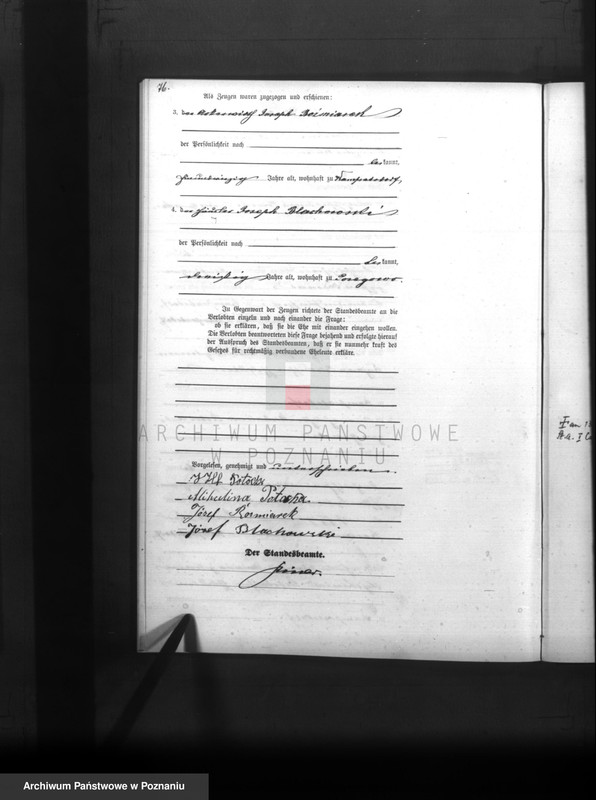 76.
Als Zeugen waren zugezogen und erschienen:
3. der Joseph Rosmiarek
der Persönlichkeit nach
be kannt,
Jahre alt, wohnhaft zu
4. der Häusler Joseph Blachowski
der Persönlichkeit nach
be kannt,
dreißig Jahre alt, wohnhaft zu
In Gegenwart der Zeugen richtete der Standesbeamte an die
Verlobten einzeln und nach einander die Frage:
ob sie erklären, daß sie die Ehe mit einander eingehen wollen.
Die Verlobten beantworteten diese Frage bejahend und erfolgte hierauf
der Ausspruch des Standesbeamten, daß er sie nunmehr kraft des
Gesetzes für rechtmäßig verbundene Eheleute erkläre.
ARCHIWUM PAŃSTWOWE
W POZNANIU
Vorgelesen, genehmigt und unterschrieben.
Michalina
Józef Rosmiarek
Józef Blachowski
Der Standesbeamte.
Archiwum Państwowe w Poznaniu